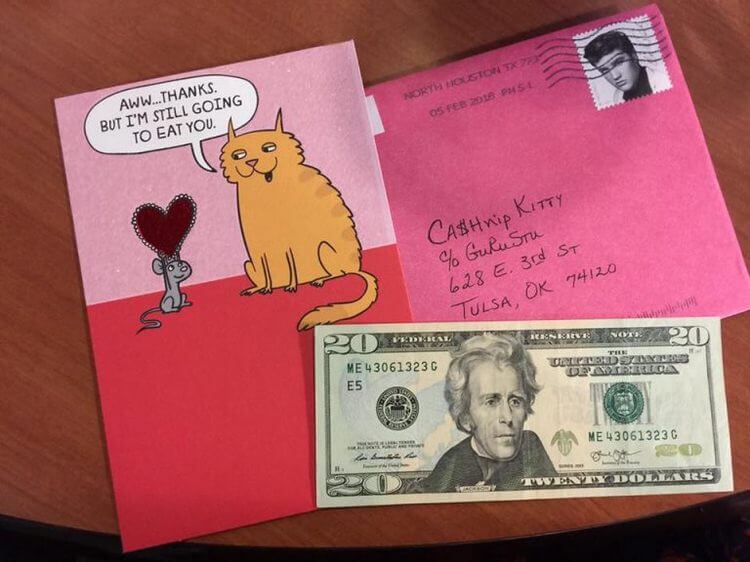 AWW...THANKS.
BUT I'M STILL GOING
TO EAT YOU.
NORTH HOUSTON TX 773
05 FEB 2018 PM 5 L
CA$Hnip KITTY
c/o GuRuStu
628 E. 3rd ST
TULSA, OK 74120
20 FEDERAL RESERVE NOTE 20
THE
UNITED STATES
OF AMERICA
ME 43061323 G
E5
THIS NOTE IS LEGAL TENDER
FOR ALL DEBTS, PUBLIC AND PRIVATE
ME 43061323 G
20
JACKSON
20 TWENTY DOLLARS